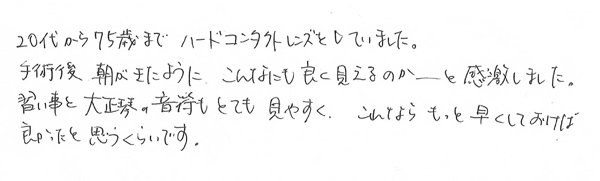 20代から75歳まで ハードコンタクトレンズをしていました。
手術後 朝が来たように、こんなにも良く見えるのか―と感激しました。
習い事を 大正琴の音符もとても 見やすく、これなら もっと早くしておけば
良かったと思うくらいです。